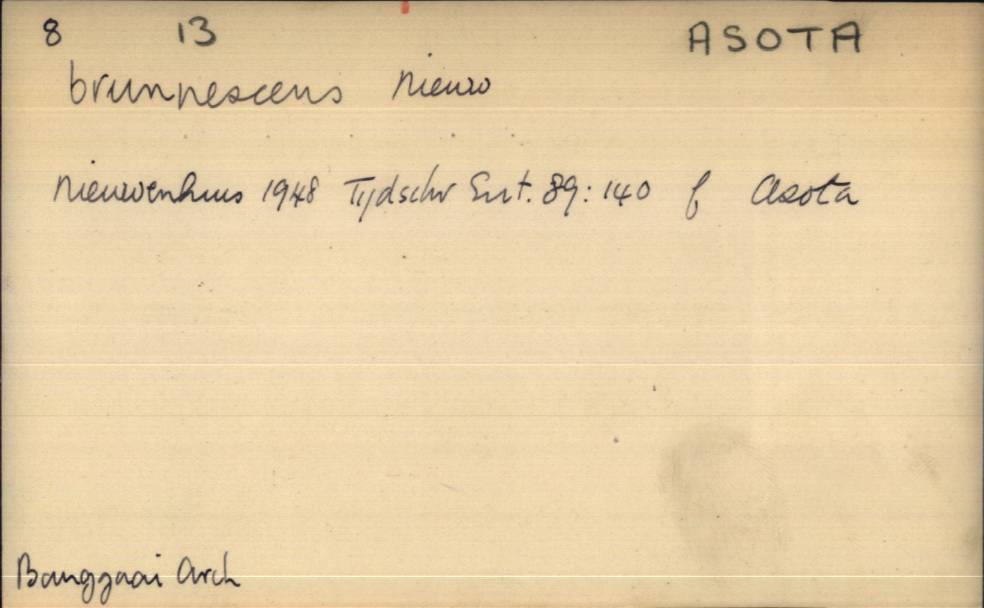 8 13 ASOTA
brunnescens Nieuw
Nieuwenhuis 1948 Tijdschr Ent. 89: 140 f Asota
Banggaai Arch